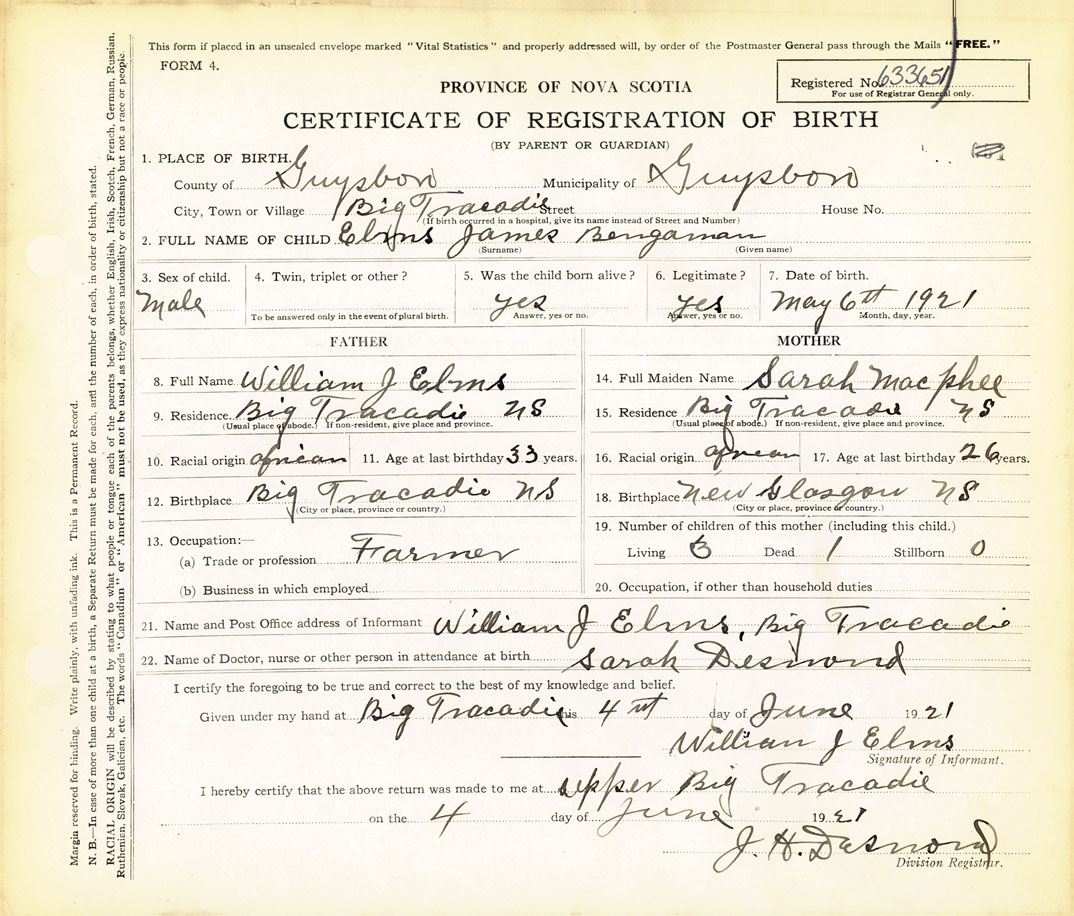 This form if placed in an unsealed envelope marked "Vital Statistics" and properly addressed will, by order of the Postmaster General pass through the Mails "FREE."
FORM 4.
Registered No. 633651
For use of Registrar General only.
PROVINCE OF NOVA SCOTIA
CERTIFICATE OF REGISTRATION OF BIRTH
(BY PARENT OR GUARDIAN)
1. PLACE OF BIRTH.
County of Guysboro Municipality of Guysboro
City, Town or Village Big Tracadie Street House No.
(If birth occurred in a hospital, give its name instead of Street and Number)
2. FULL NAME OF CHILD Elms James Bengaman
(Surname) (Given name)
3. Sex of child. 4. Twin, triplet or other? 5. Was the child born alive? 6. Legitimate? 7. Date of birth.
Male yes yes May 6th 1921
To be answered only in the event of plural birth. Answer, yes or no. Answer, yes or no. Month, day, year.
FATHER
8. Full Name William J Elms
9. Residence Big Tracadie NS
(Usual place of abode.) If non-resident, give place and province.
10. Racial origin african 11. Age at last birthday 33 years.
12. Birthplace Big Tracadie NS
(City or place, province or country.)
13. Occupation:—
(a) Trade or profession Farmer
(b) Business in which employed
MOTHER
14. Full Maiden Name Sarah Mac phee
15. Residence Big Tracadie NS
(Usual place of abode.) If non-resident, give place and province.
16. Racial origin african 17. Age at last birthday 26 years.
18. Birthplace New Glasgow NS
(City or place, province or country.)
19. Number of children of this mother (including this child.)
Living Dead 1 Stillborn 0
20. Occupation, if other than household duties
21. Name and Post Office address of Informant William J Elms, Big Tracadie
22. Name of Doctor, nurse or other person in attendance at birth Sarah Desmond
I certify the foregoing to be true and correct to the best of my knowledge and belief.
Given under my hand at Big Tracadie this 4 day of June 1921
William J Elms
Signature of Informant.
I hereby certify that the above return was made to me at upper Big Tracadie
on the 4 day of June 1921
J. H. Desmond
Division Registrar.
Margin reserved for binding. Write plainly, with unfading ink. This is a Permanent Record.
N. B.—In case of more than one child at a birth, a Separate Return must be made for each, and the number of each, in order of birth, stated.
RACIAL ORIGIN will be described by stating to what people or tongue each of the parents belongs, whether English, Irish, Scotch, French, German, Russian,
Ruthenian, Slovak, Galician, etc. The words "Canadian" or "American" must not be used, as they express nationality or citizenship but not a race or people